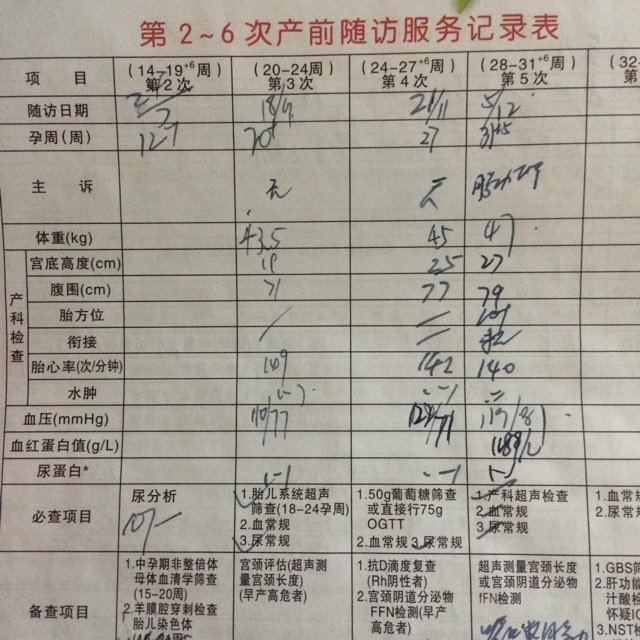 第2~6次产前随访服务记录表
项 目 (14-19+6周) 第2次 (20-24周) 第3次 (24-27+6周) 第4次 (28-31+6周) 第5次 (32- 第
随访日期 21/11 5/12
孕周(周) 20 27 31+5
主 诉 无 无
体重(kg) 43.5 45 47
产科检查
宫底高度(cm) 19 25 27
腹围(cm) 71 77 79
胎方位 / /
衔接 / /
胎心率(次/分钟) 149 142 140
水肿 (-) (-)
血压(mmHg) 110/77
血红蛋白值(g/L)
尿蛋白* (-) (-) (-)
必查项目
尿分析
1.胎儿系统超声
筛查(18-24孕周)
2.血常规
3.尿常规
1.50g葡萄糖筛查
或直接行75g
OGTT
2.血常规 3.尿常规
1.产科超声检查
2.血常规
3.尿常规
1.血常
2.尿常
备查项目
1.中孕期非整倍体
母体血清学筛查
(15-20周)
2.羊膜腔穿刺检查
胎儿染色体
宫颈评估(超声测
量宫颈长度)
(早产高危者)
1.抗D滴度复查
(Rh阴性者)
2.宫颈阴道分泌物
FFN检测(早产
高危者)
超声测量宫颈长度
或宫颈阴道分泌物
fFN检测
1.GBS筛
2.肝功能
汁酸检
怀疑IC
3.NST检